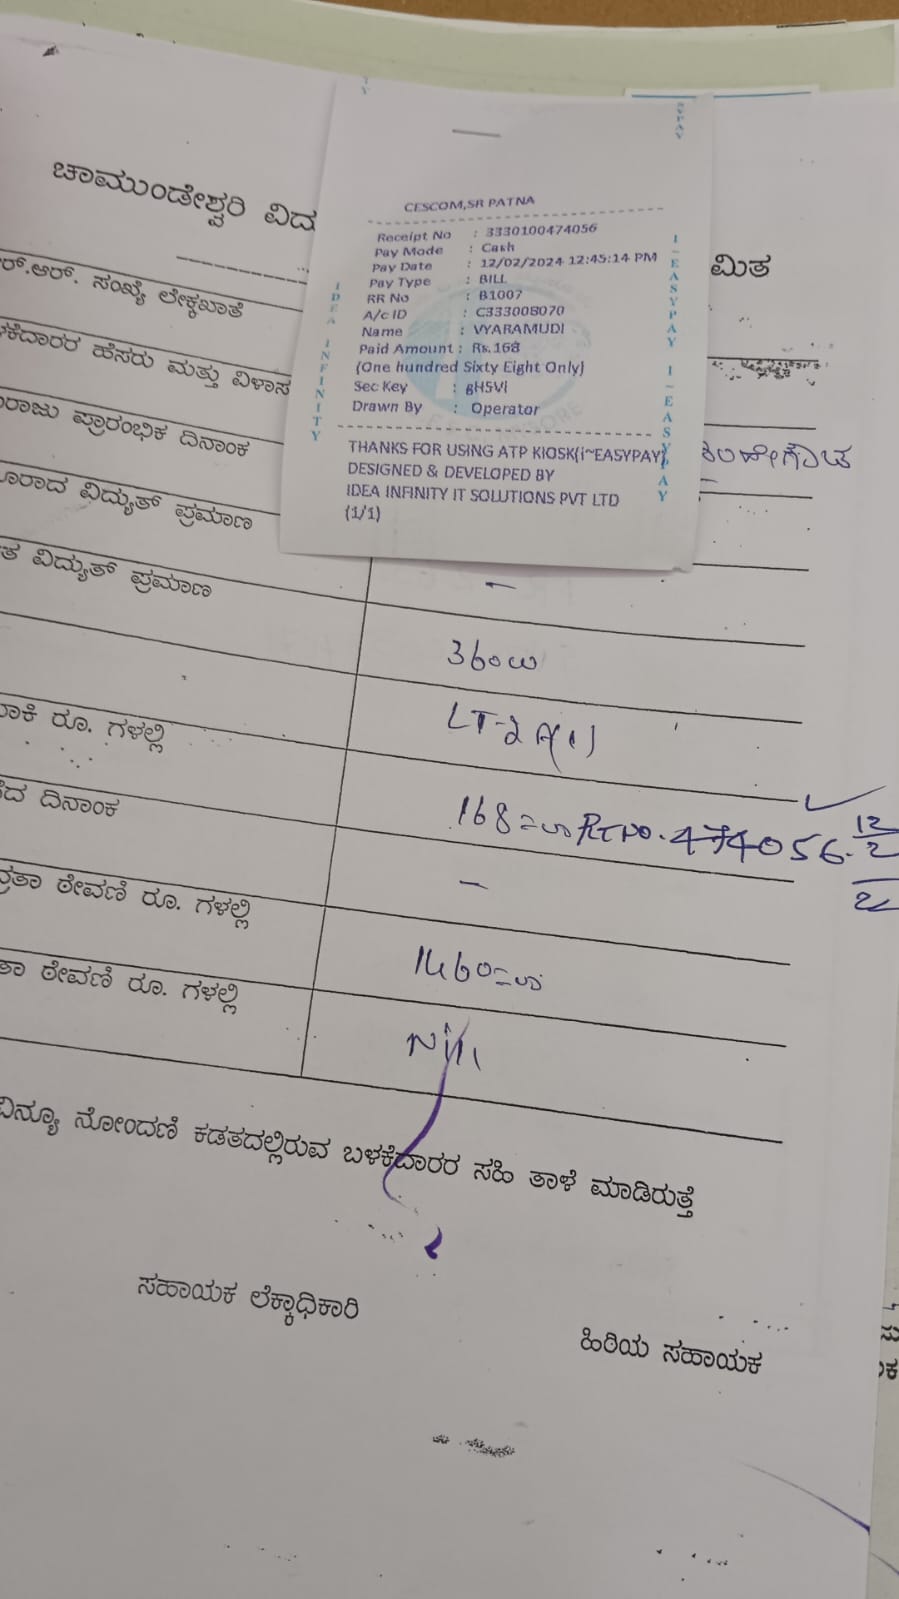 ಚಾಮುಂಡೇಶ್ವರಿ ವಿದ
ಮಿತ
CESCOM,SR PATNA
Receipt No : 3330100474056
Pay Mode : Cash
Pay Date : 12/02/2024 12:45:14 PM
Pay Type : BILL
RR No : B1007
A/c ID : C333008070
Name : VYARAMUDI
Paid Amount : Rs.168
(One hundred Sixty Eight Only)
Sec Key : gH5Vi
Drawn By : Operator
THANKS FOR USING ATP KIOSK(i~EASYPAY)
DESIGNED & DEVELOPED BY
IDEA INFINITY IT SOLUTIONS PVT LTD
(1/1)
IDEA INFINITY
I-EASYPAY I-EASYPAY
ರ್.ಆರ್. ಸಂಖ್ಯೆ ಲೇಕ್ಕಖಾತೆ
ಕೆದಾರರ ಹೆಸರು ಮತ್ತು ವಿಳಾಸ
ರಾಜು ಪ್ರಾರಂಭಿಕ ದಿನಾಂಕ
ೂರಾದ ವಿದ್ಯುತ್ ಪ್ರಮಾಣ
ತ ವಿದ್ಯುತ್ ಪ್ರಮಾಣ
–
360W
LT-2A(1)
ಾಕಿ ರೂ. ಗಳಲ್ಲಿ
168=00 RTNO. 474056. 12/2
ದ ದಿನಾಂಕ
–
ಠೇವಣಿ ರೂ. ಗಳಲ್ಲಿ
1460=00
ತಾ ಠೇವಣಿ ರೂ. ಗಳಲ್ಲಿ
Nill
ವಿನ್ಯೂ ನೋಂದಣಿ ಕಡತದಲ್ಲಿರುವ ಬಳಕೆದಾರರ ಸಹಿ ತಾಳೆ ಮಾಡಿರುತ್ತೆ
ಸಹಾಯಕ ಲೆಕ್ಕಾಧಿಕಾರಿ
ಹಿರಿಯ ಸಹಾಯಕ